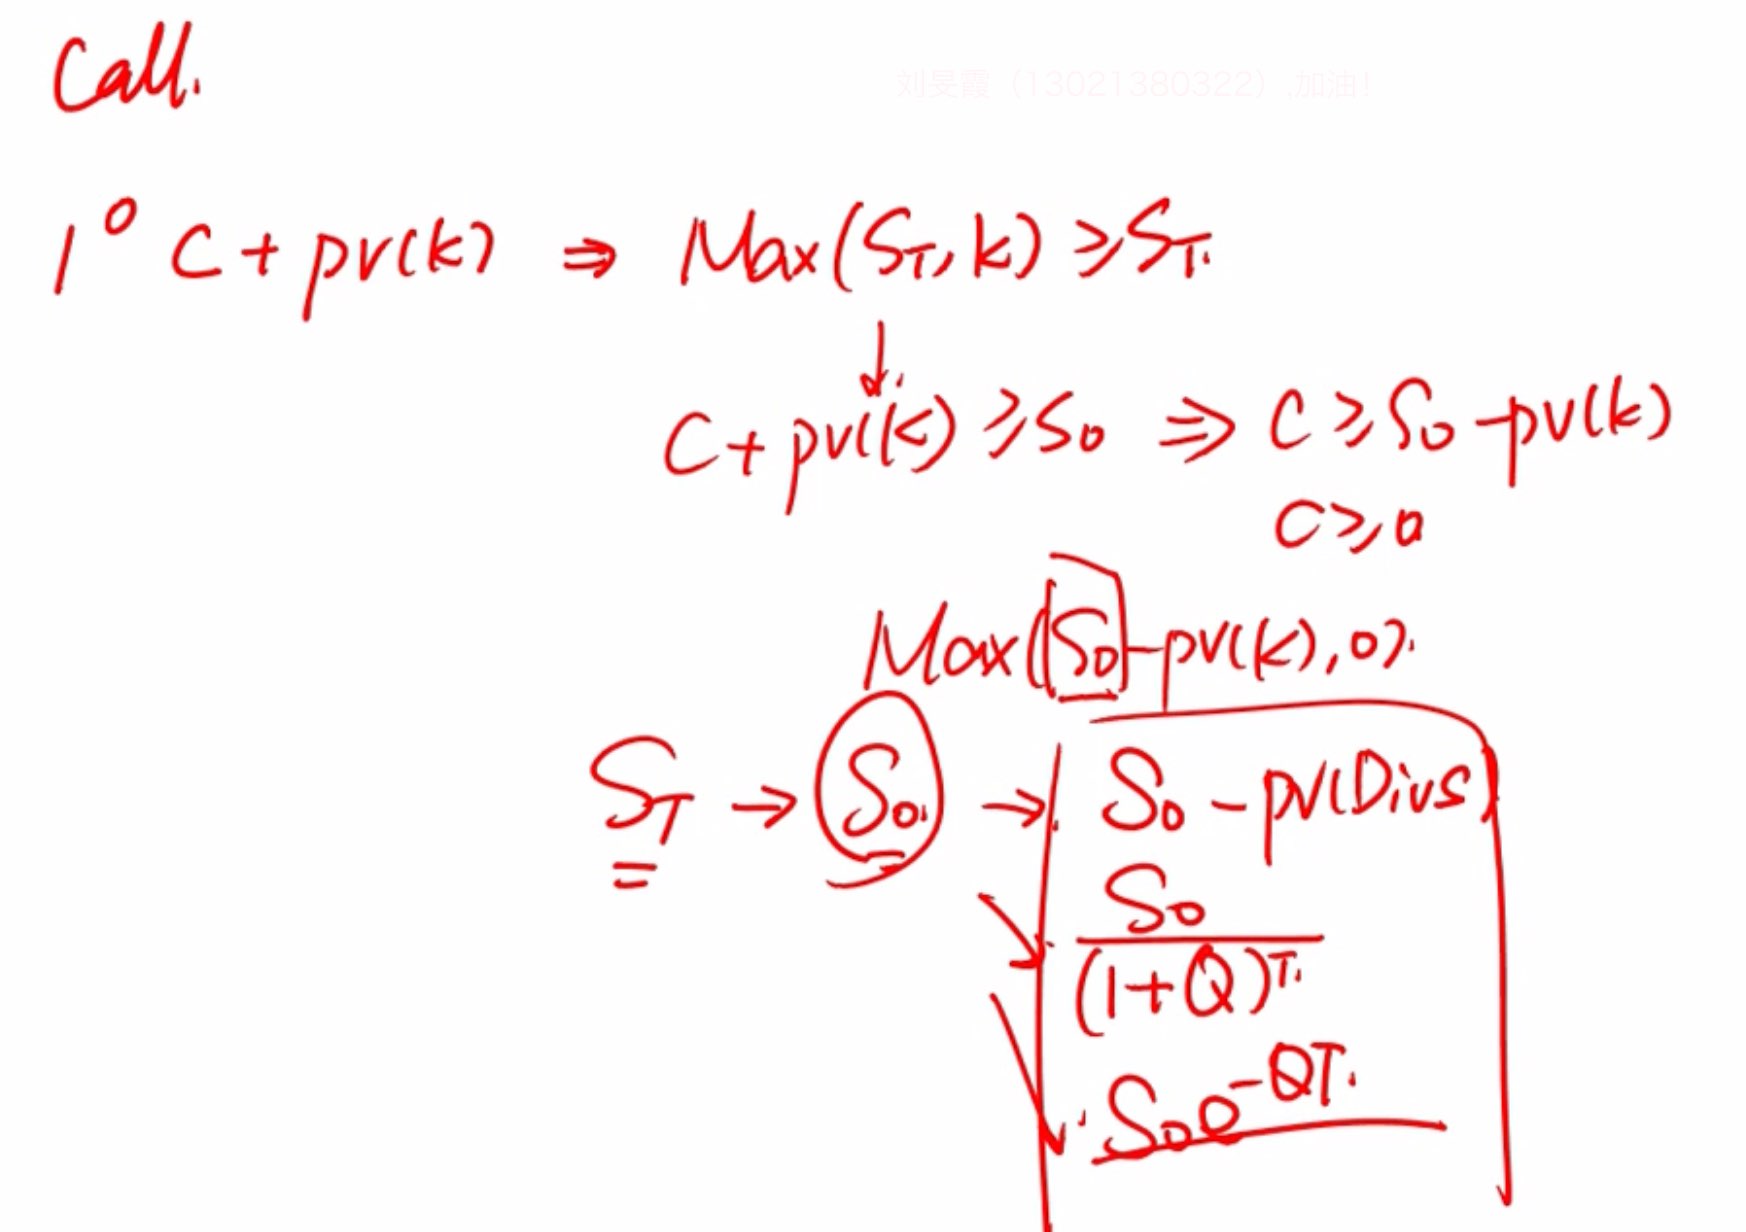 Call.
刘旻霞（13021380322）,加油！
1° C + pv(k) ⇒ Max(S_T, k) ≥ S_T.
↓
C + pv(k) ≥ S_0 ⇒ C ≥ S_0 - pv(k)
C ≥ 0
Max(S_0 - pv(k), 0).
S_T → S_0. → S_0 - pv(Divs)
S_0
(1+Q)^T.
S_0 e^{-QT}.